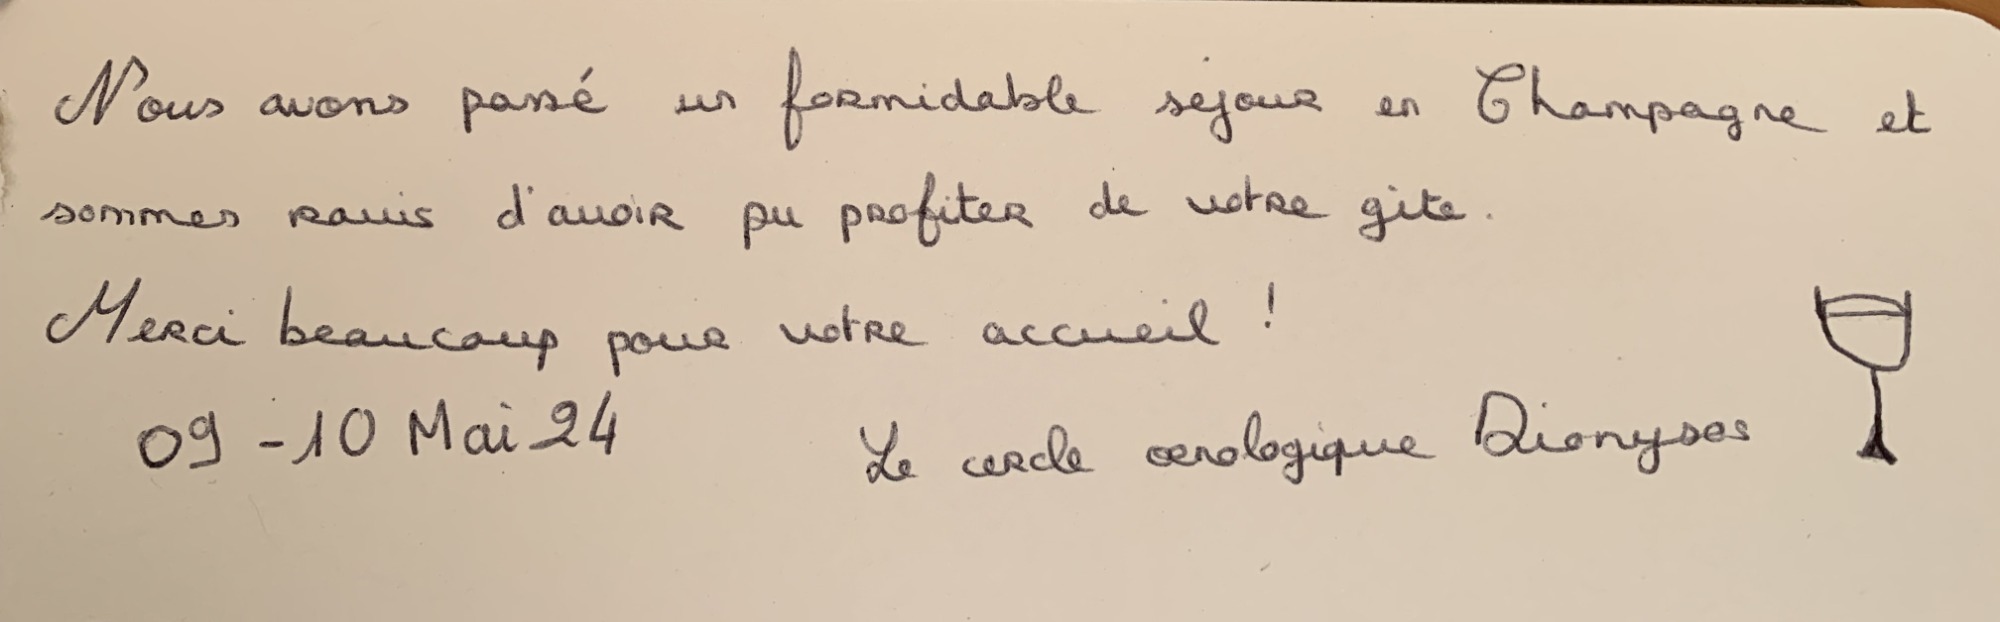 Nous avons passé un formidable sejour en Champagne et
sommes ravis d'avoir pu profiter de votre gite.
Merci beaucoup pour votre accueil !
09-10 Mai 24 Le cercle œnologique Dionysos